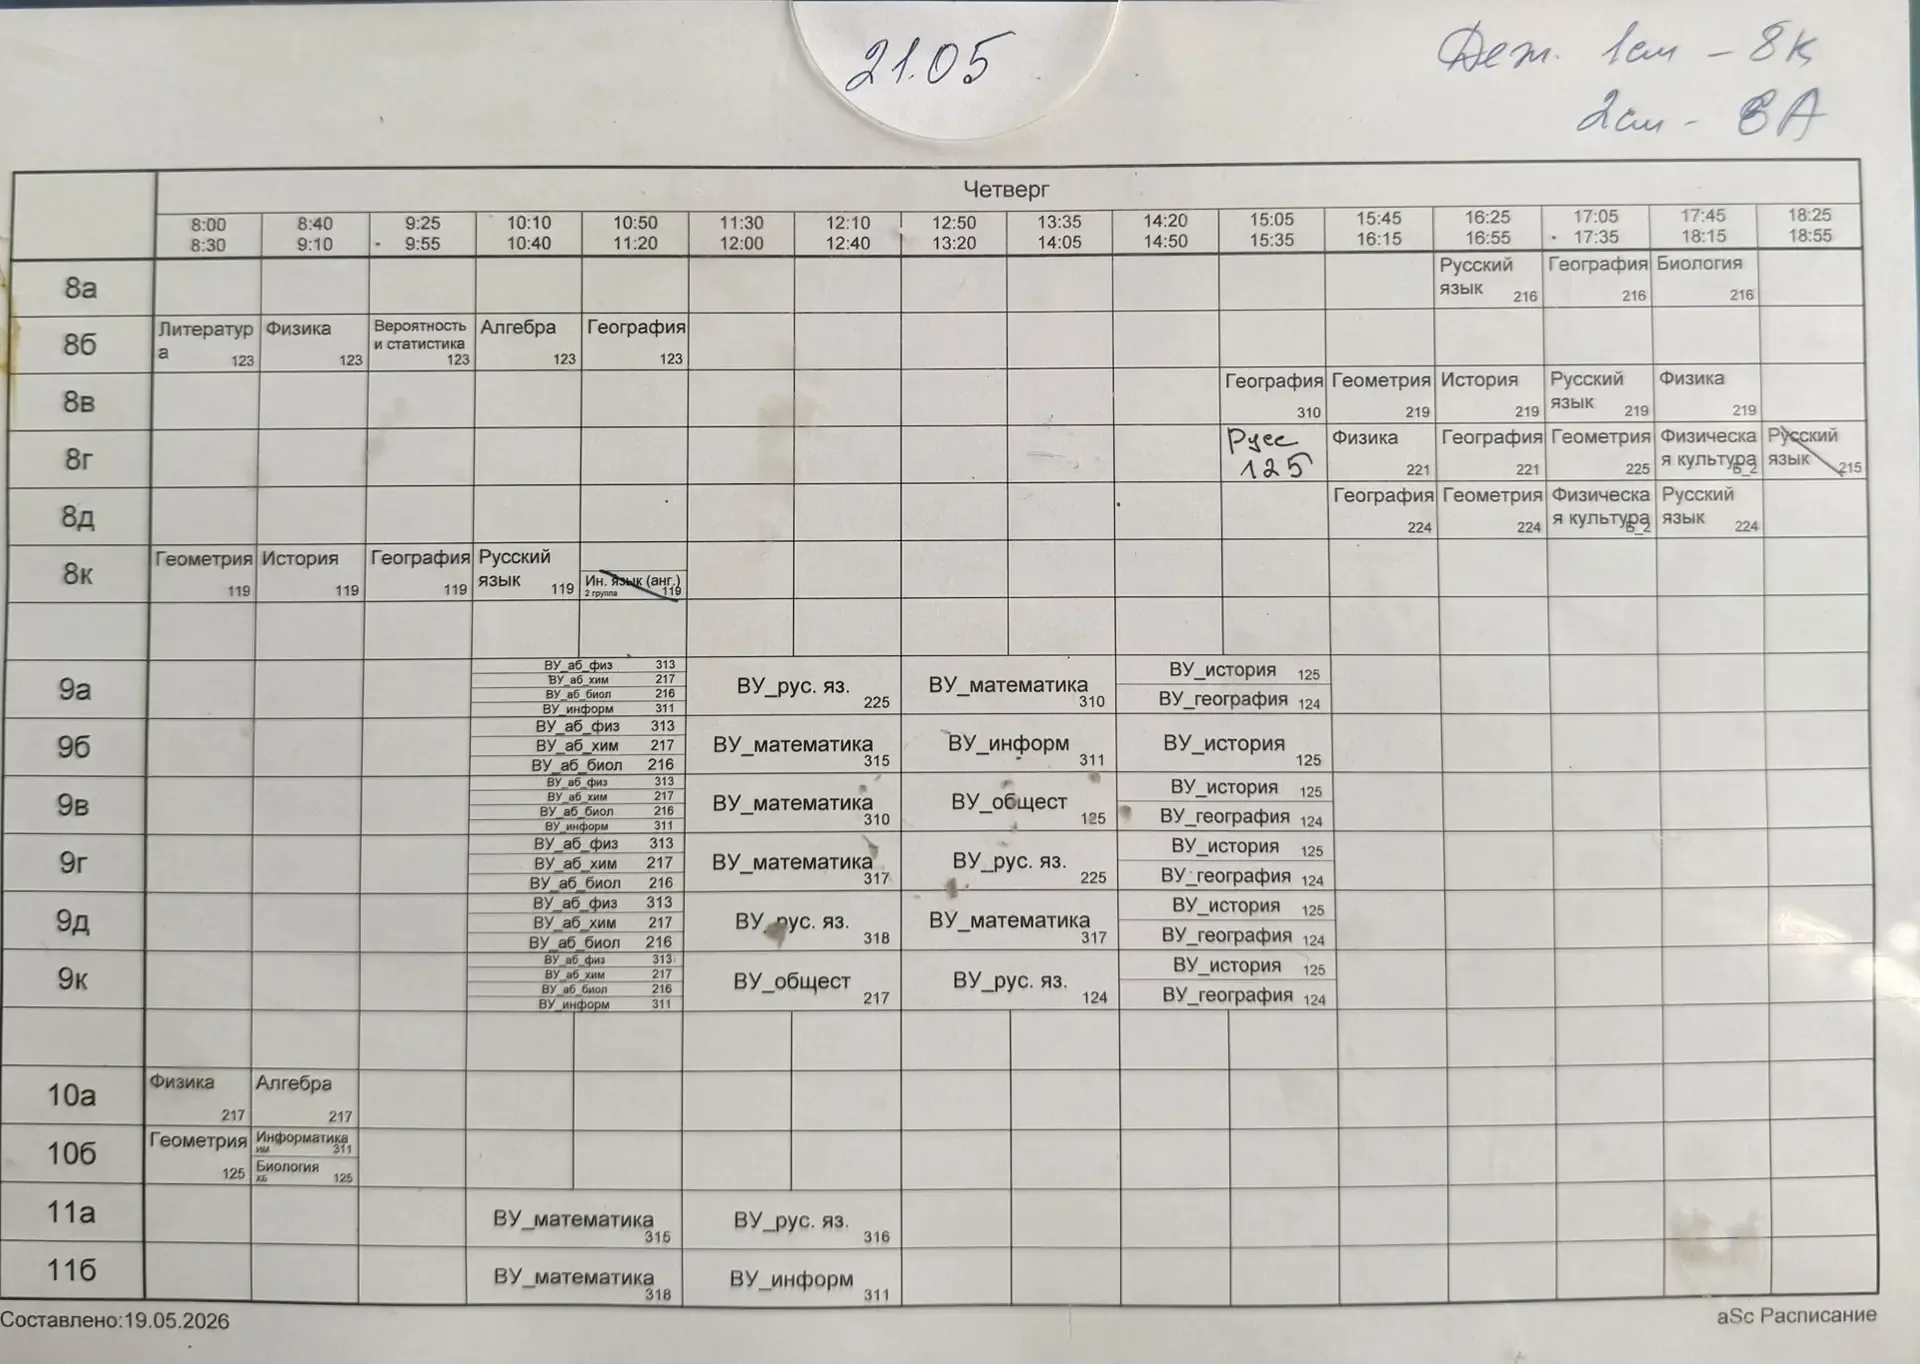 21.05
Деж. 1см - 8к
2см - 8А
Четверг
8:00 8:40 9:25 10:10 10:50 11:30 12:10 12:50 13:35 14:20 15:05 15:45 16:25 17:05 17:45 18:25
8:30 9:10 9:55 10:40 11:20 12:00 12:40 13:20 14:05 14:50 15:35 16:15 16:55 17:35 18:15 18:55
8а Русский язык 216 География 216 Биология 216
8б Литература 123 Физика 123 Вероятность и статистика 123 Алгебра 123 География 123
8в География 310 Геометрия 219 История 219 Русский язык 219 Физика 219
8г Русс 125 Физика 221 География 221 Геометрия 225 Физическая культура Б_2 Русский язык 215
8д География 224 Геометрия 224 Физическая культура Б_2 Русский язык 224
8к Геометрия 119 История 119 География 119 Русский язык 119 Ин. язык (анг.) 2 группа 119
9а ВУ_аб_физ 313 ВУ_аб_хим 217 ВУ_аб_биол 216 ВУ_информ 311 ВУ_рус. яз. 225 ВУ_математика 310 ВУ_история 125 ВУ_география 124
9б ВУ_аб_физ 313 ВУ_аб_хим 217 ВУ_аб_биол 216 ВУ_математика 315 ВУ_информ 311 ВУ_история 125
9в ВУ_аб_физ 313 ВУ_аб_хим 217 ВУ_аб_биол 216 ВУ_информ 311 ВУ_математика 310 ВУ_общест 125 ВУ_история 125 ВУ_география 124
9г ВУ_аб_физ 313 ВУ_аб_хим 217 ВУ_аб_биол 216 ВУ_математика 317 ВУ_рус. яз. 225 ВУ_история 125 ВУ_география 124
9д ВУ_аб_физ 313 ВУ_аб_хим 217 ВУ_аб_биол 216 ВУ_рус. яз. 318 ВУ_математика 317 ВУ_история 125 ВУ_география 124
9к ВУ_аб_физ 313 ВУ_аб_хим 217 ВУ_аб_биол 216 ВУ_информ 311 ВУ_общест 217 ВУ_рус. яз. 124 ВУ_история 125 ВУ_география 124
10а Физика 217 Алгебра 217
10б Геометрия 125 Информатика им 311 Биология хб 125
11а ВУ_математика 315 ВУ_рус. яз. 316
11б ВУ_математика 318 ВУ_информ 311
Составлено:19.05.2026
aSc Расписание